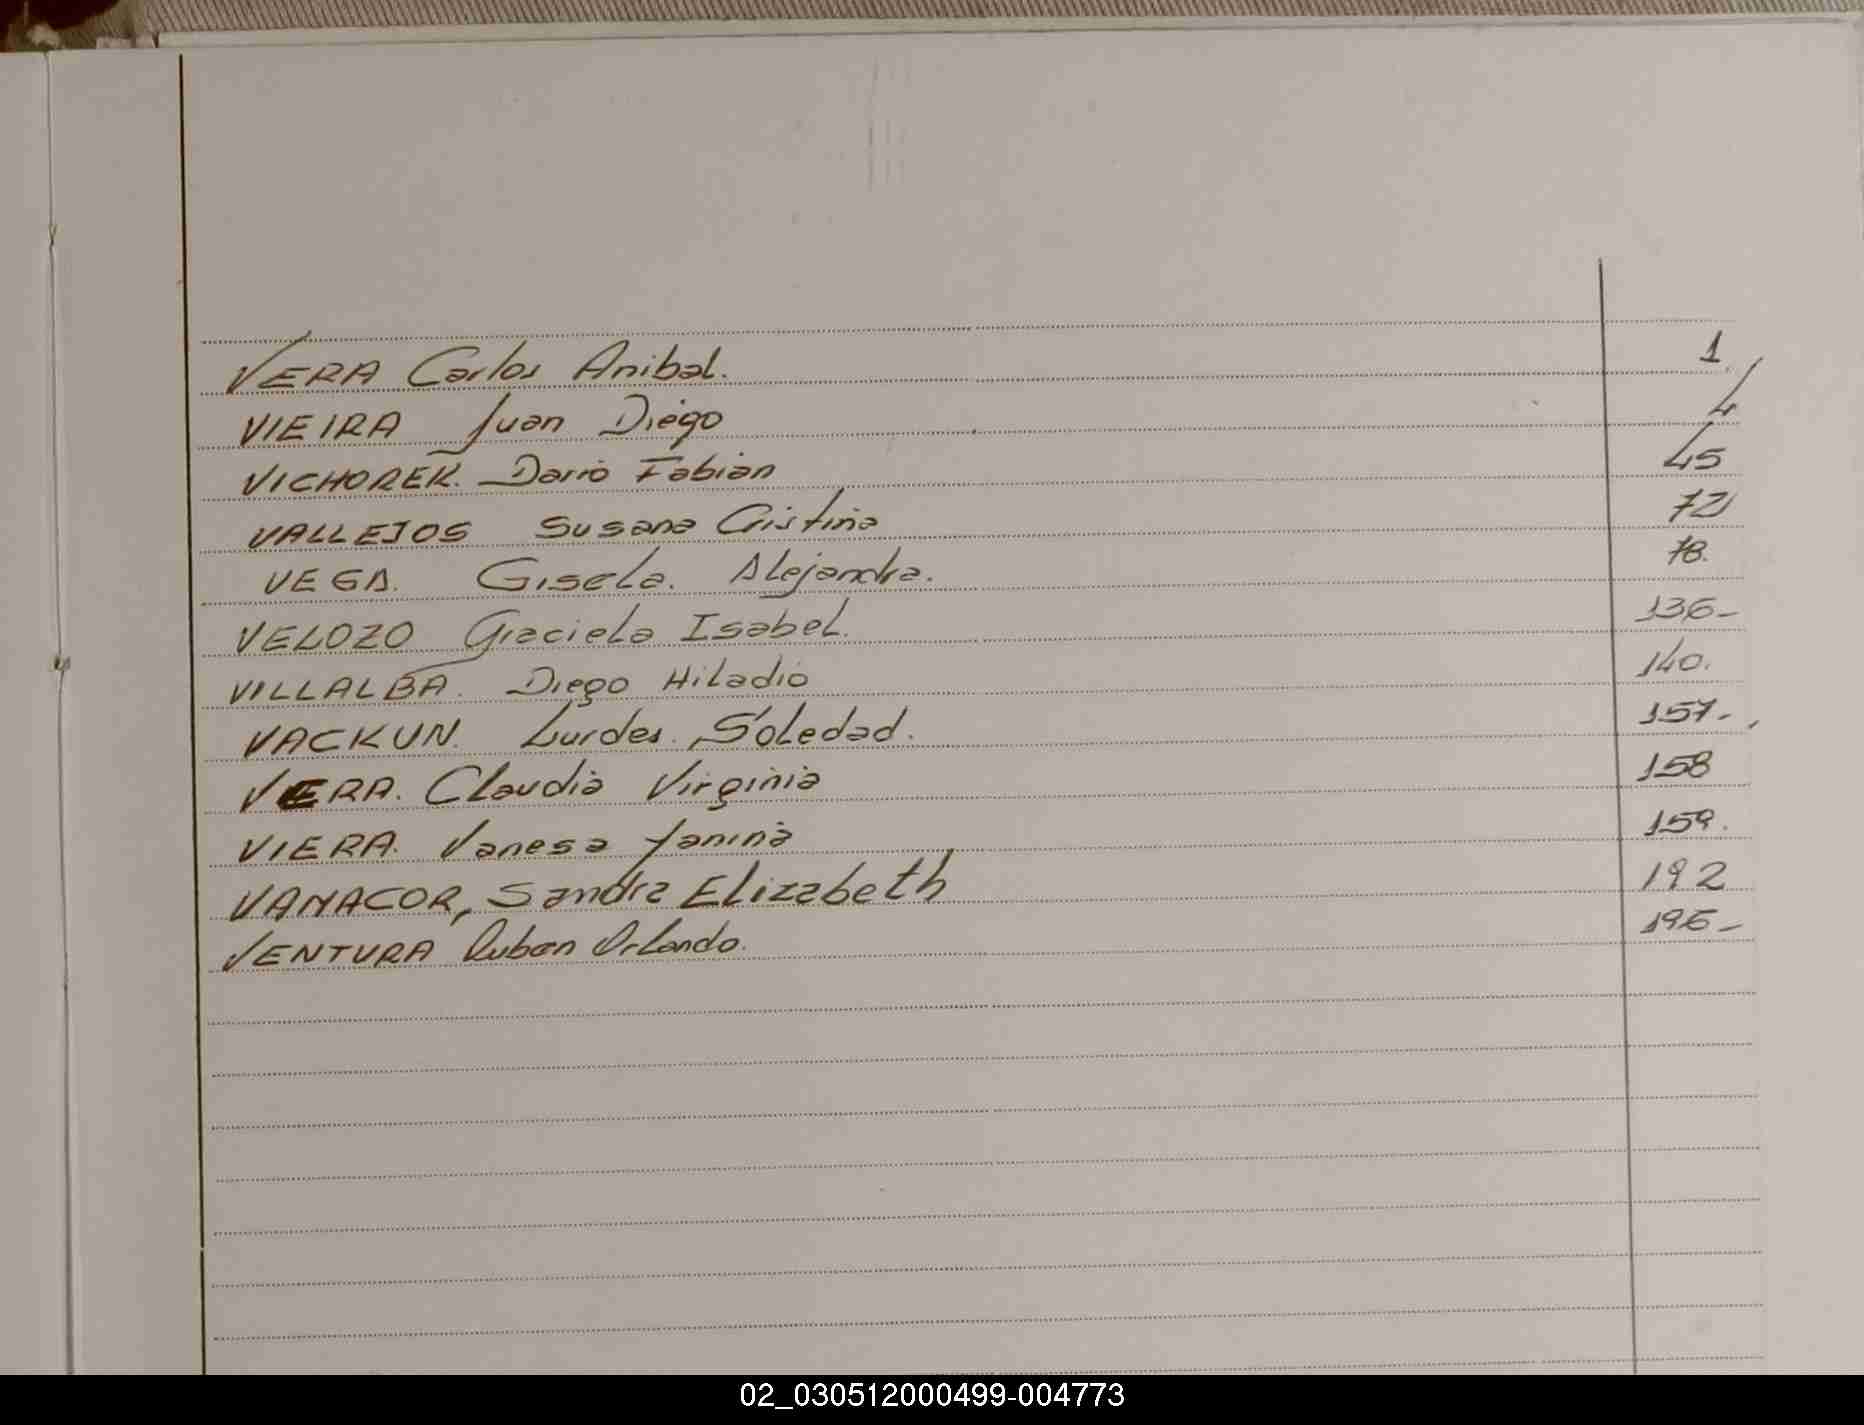 VERA Carlos Anibal. 1
VIEIRA Juan Diego 4
VICHOREK. Dario Fabian 45
VALLEJOS Susana Cristina 72
VEGA. Gisela. Alejandra. 78.
VELOZO Graciela Isabel. 136-
VILLALBA. Diego Hiladio 140.
VACKUN. Lurdes. Soledad. 157-
VERA. Claudia Virginia 158
VIERA. Vanesa Yanina 159.
VANACOR, Sandra Elizabeth 192
VENTURA Ruben Orlando. 195-
02_030512000499-004773